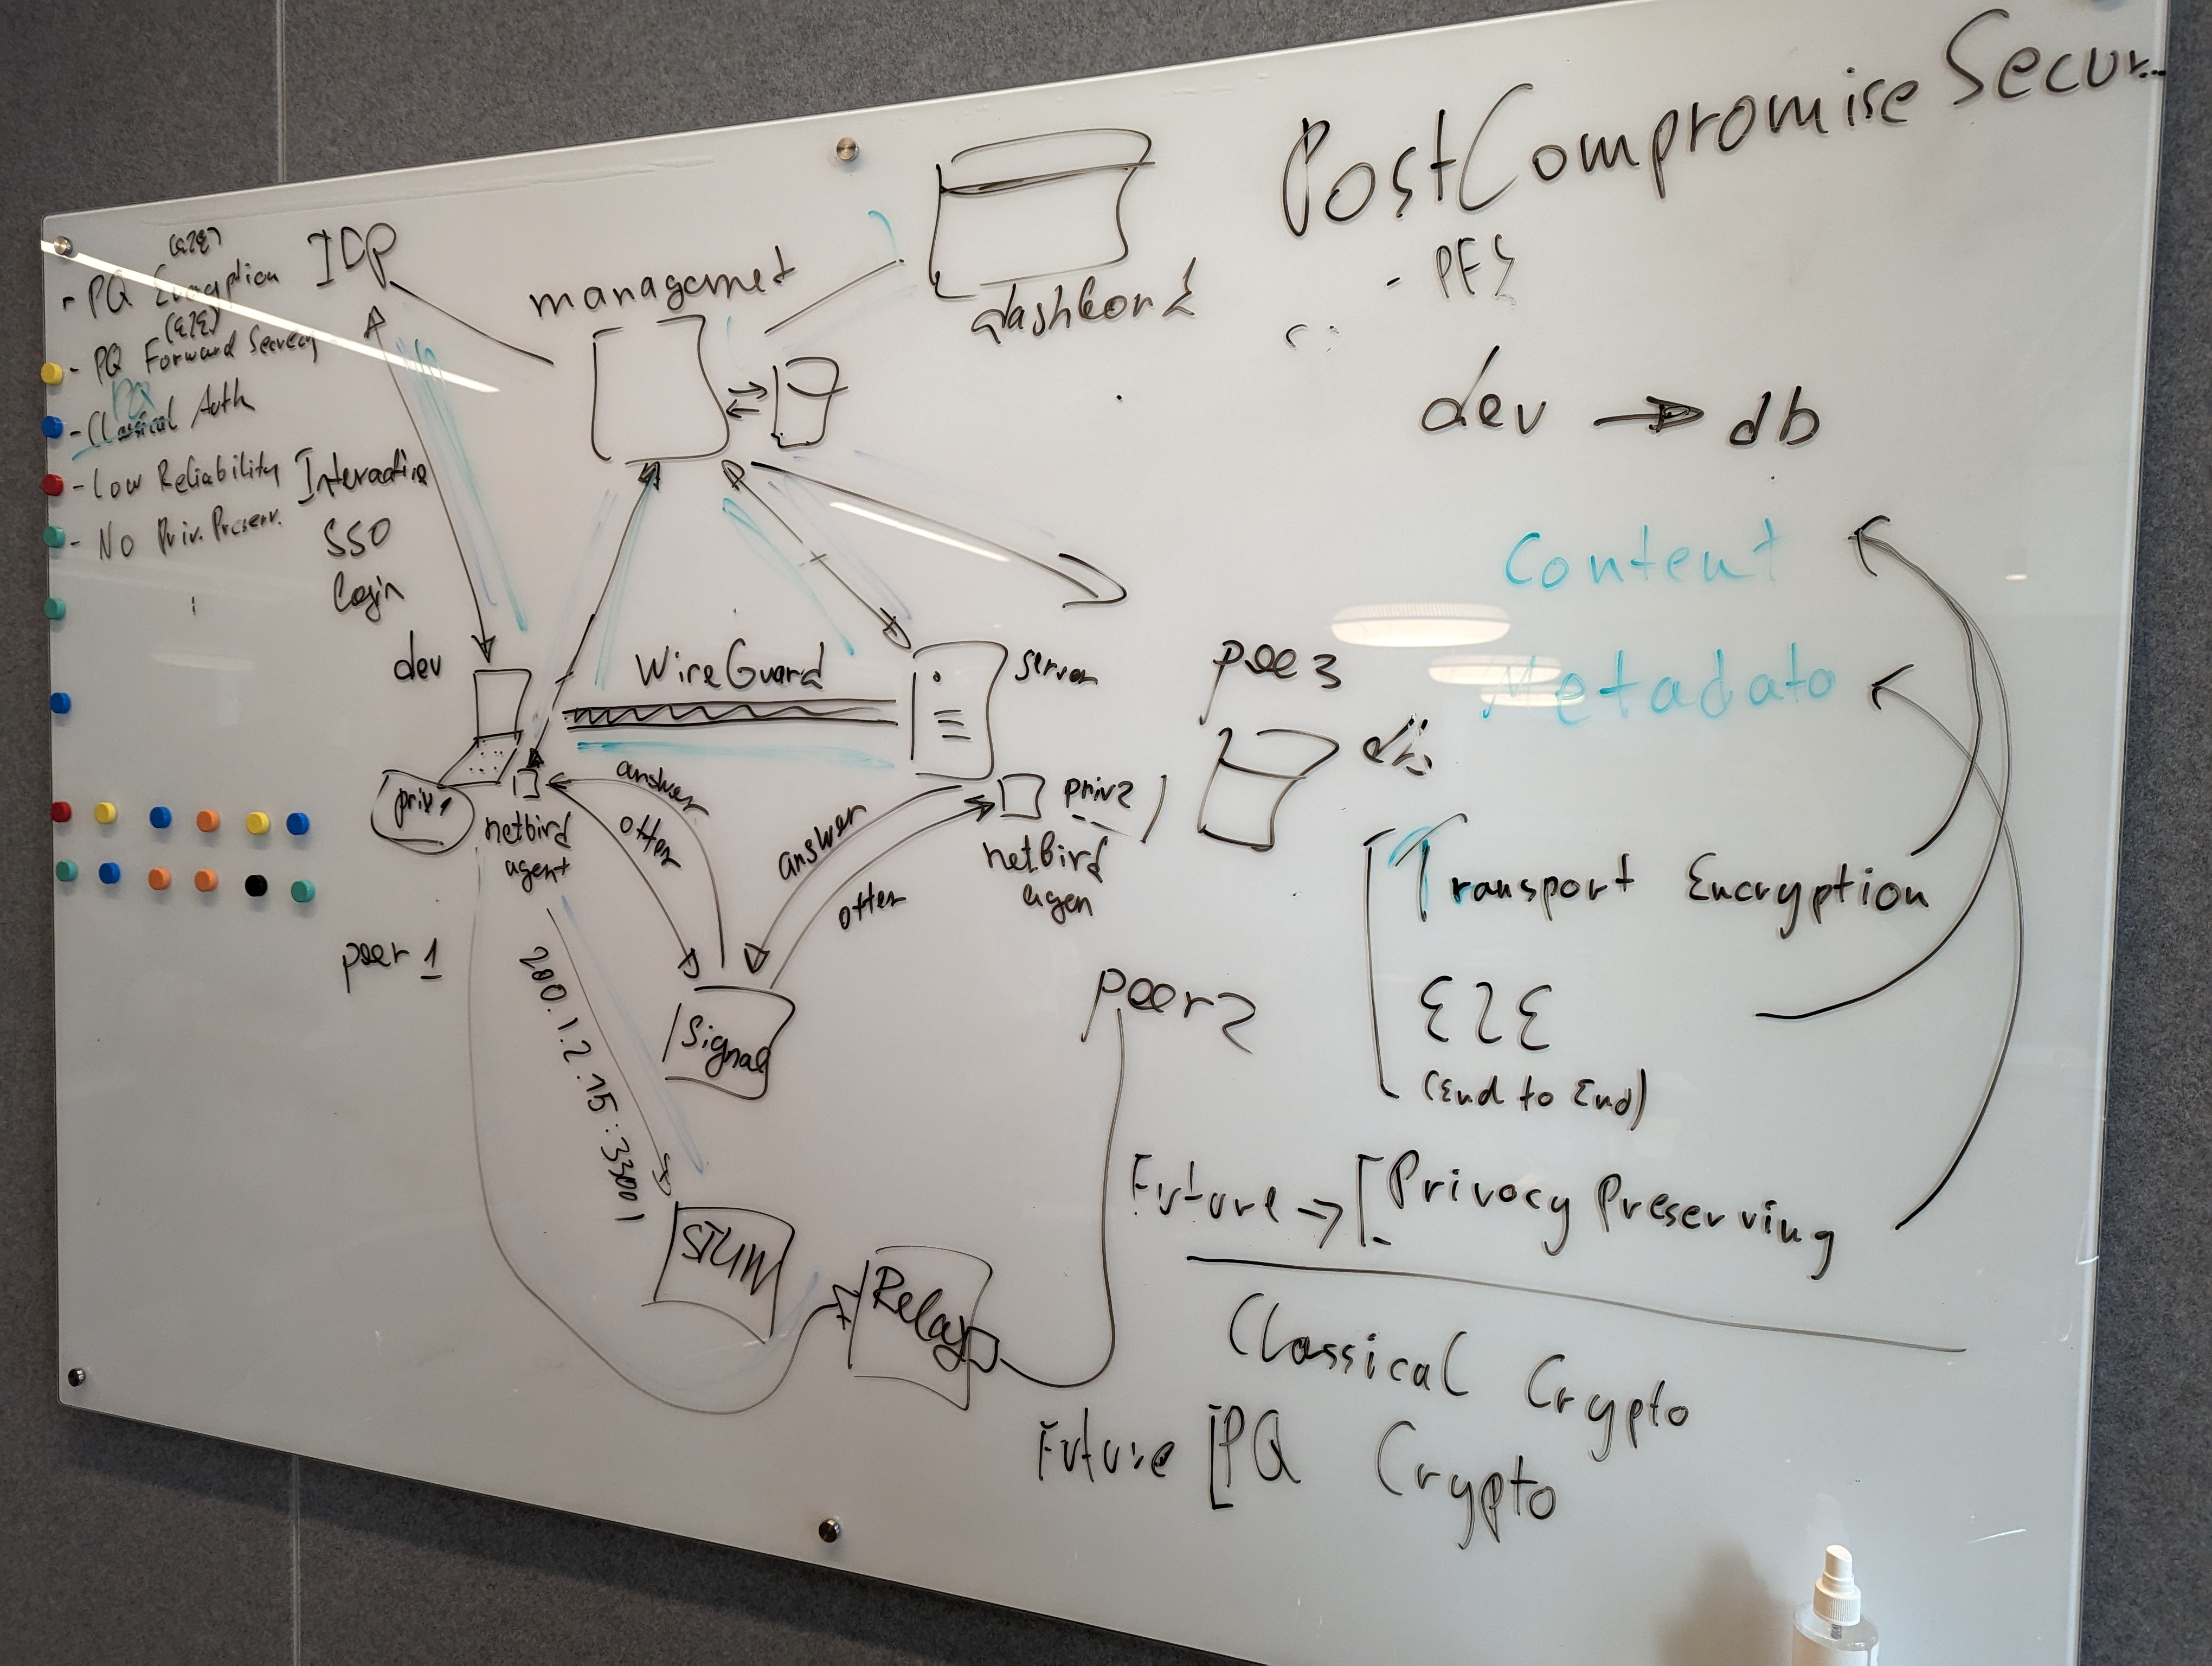 (E2E)
- PQ Encryption
(E2E)
- PQ Forward Secrecy
PQ
- Classical Auth
- Low Reliability
- No Priv. Preserv.
IDP
Interactive
SSO
Login
managemet
dashbord
dev
WireGuard
server
priv1
netbird
agent
peer 1
answer
offer
answer
offer
priv2
netbird
agen
peer2
Signal
200.1.2.15:33001
STUN
Relay
PostCompromise Secur...
- PFS
dev → db
Content
Metadata
pee3
Transport Encryption
E2E
(End to End)
Future → [Privacy Preserving
Classical Crypto
Future [PQ Crypto